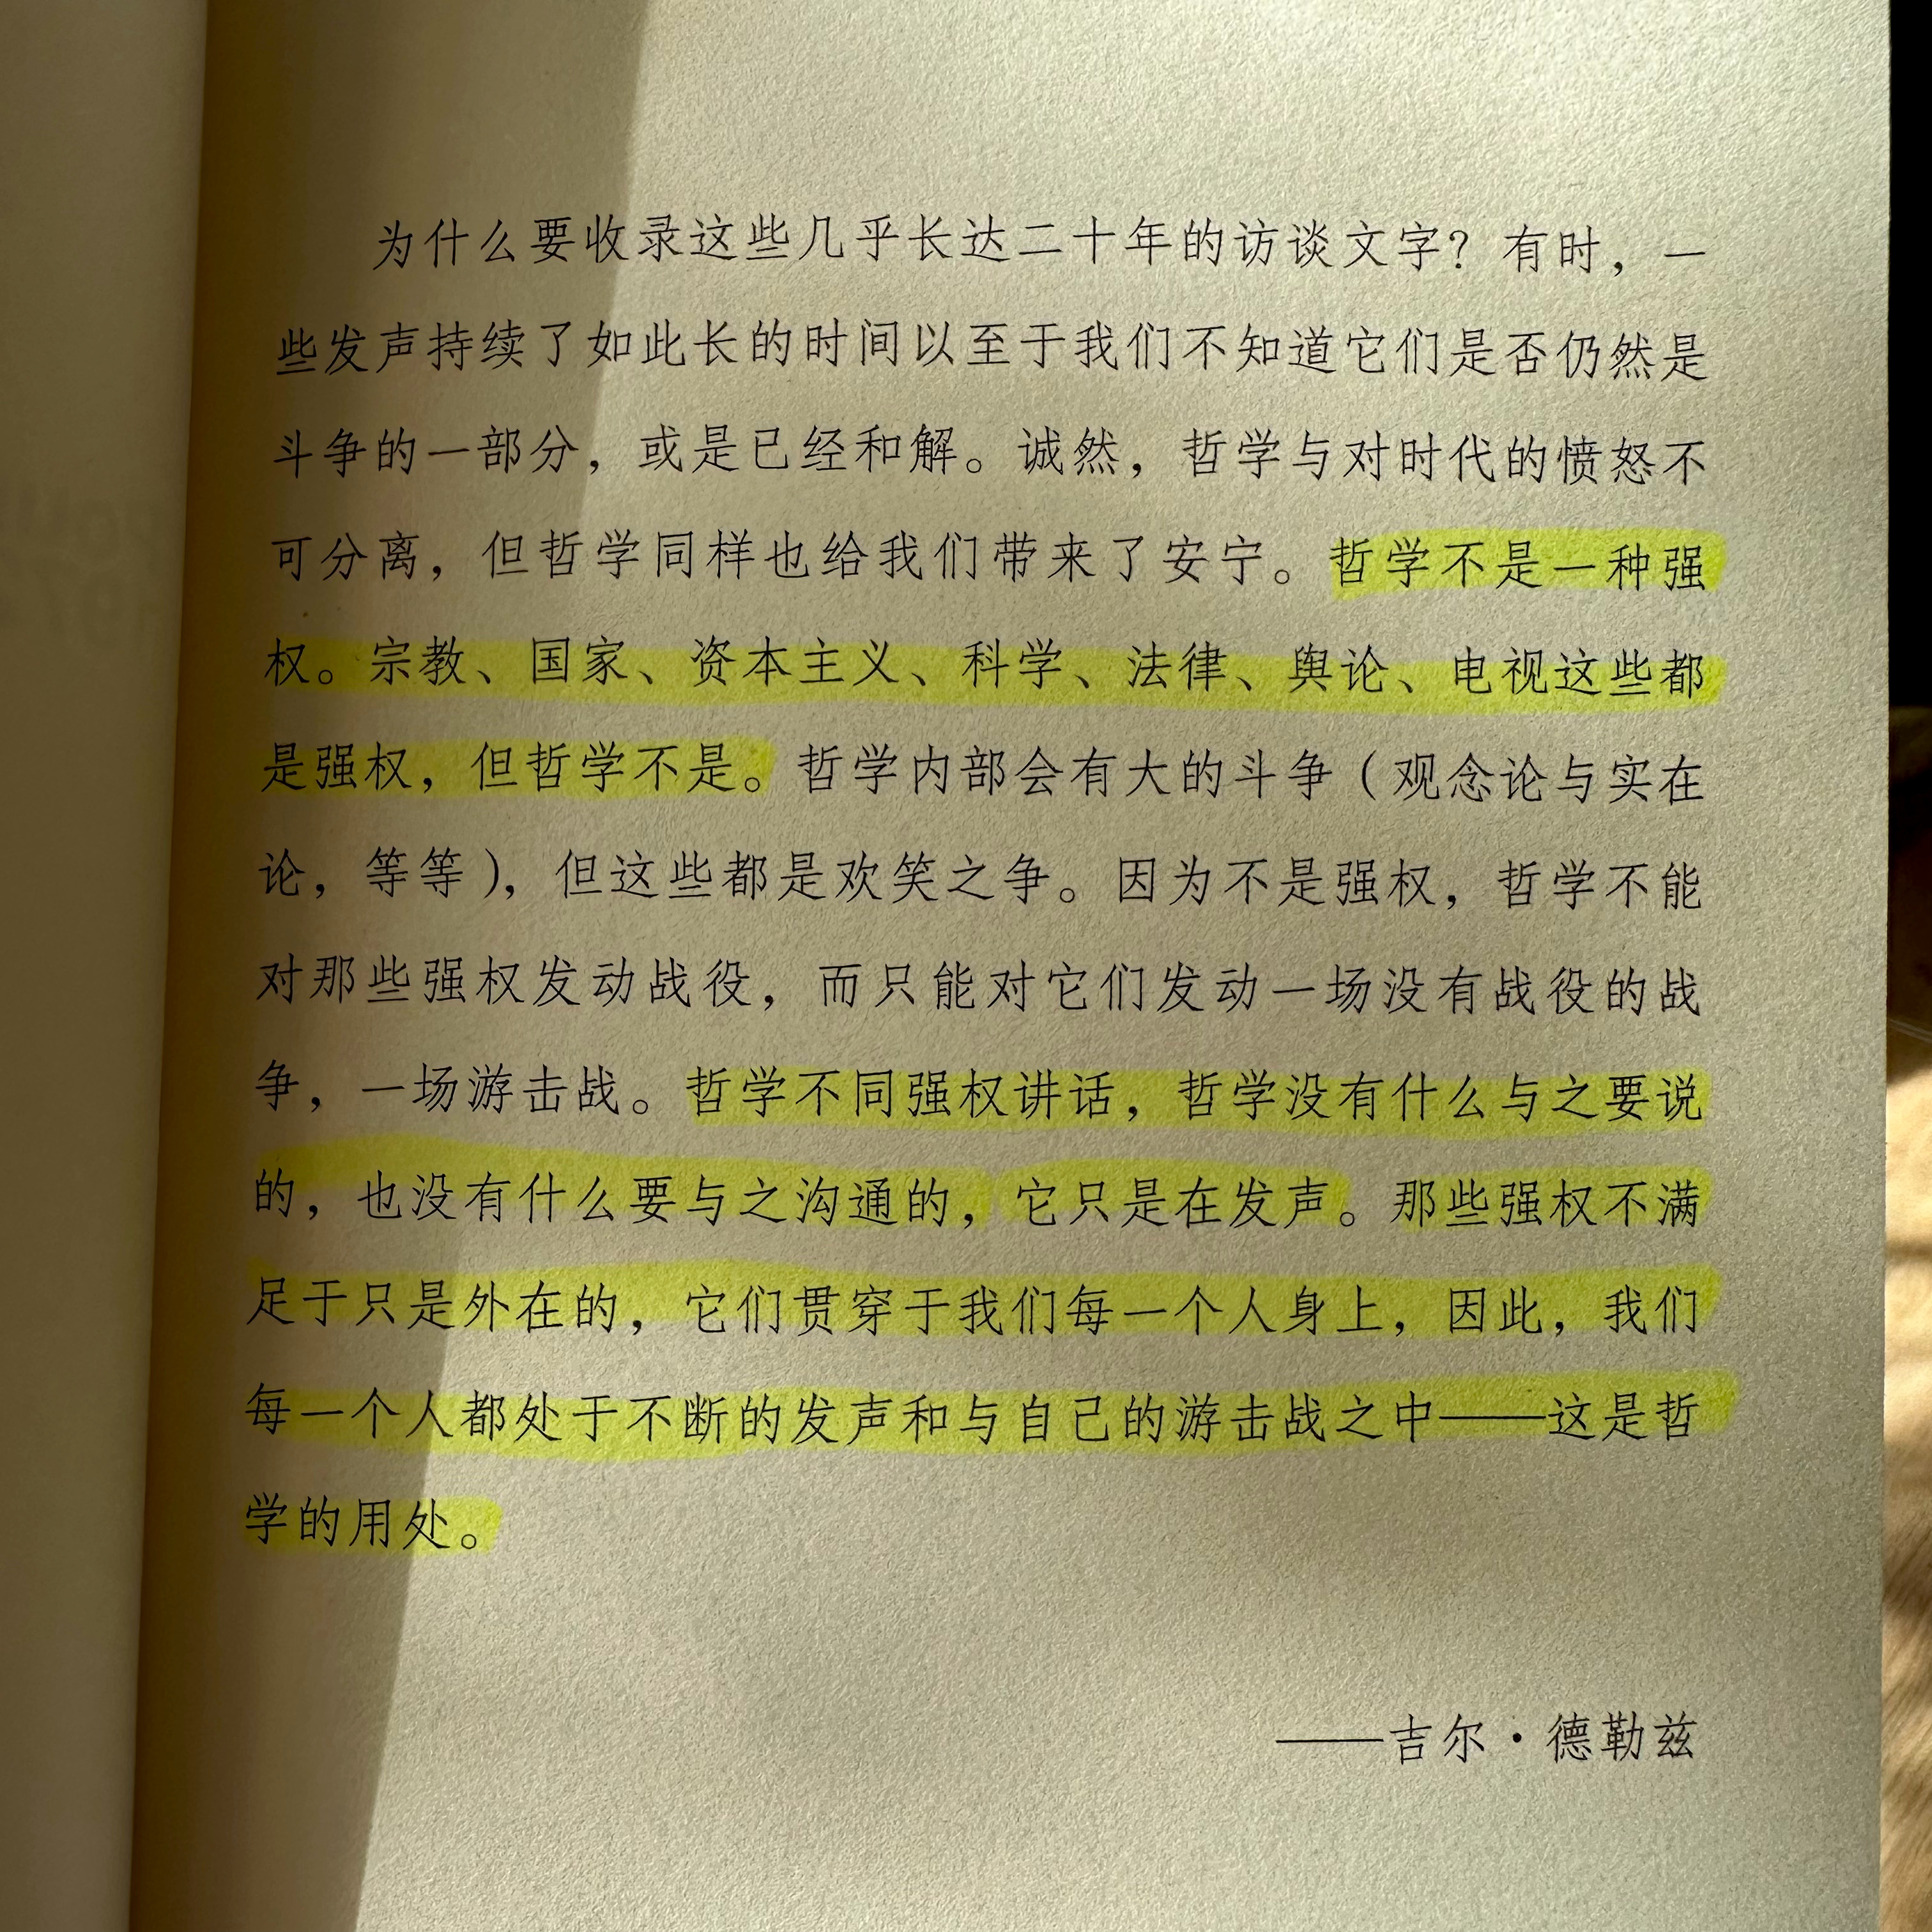 为什么要收录这些几乎长达二十年的访谈文字？有时，一
些发声持续了如此长的时间以至于我们不知道它们是否仍然是
斗争的一部分，或是已经和解。诚然，哲学与对时代的愤怒不
可分离，但哲学同样也给我们带来了安宁。哲学不是一种强
权。宗教、国家、资本主义、科学、法律、舆论、电视这些都
是强权，但哲学不是。哲学内部会有大的斗争（观念论与实在
论，等等），但这些都是欢笑之争。因为不是强权，哲学不能
对那些强权发动战役，而只能对它们发动一场没有战役的战
争，一场游击战。哲学不同强权讲话，哲学没有什么与之要说
的，也没有什么要与之沟通的，它只是在发声。那些强权不满
足于只是外在的，它们贯穿于我们每一个人身上，因此，我们
每一个人都处于不断的发声和与自己的游击战之中——这是哲
学的用处。
——吉尔·德勒兹